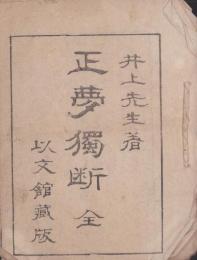 井上先生著
正夢獨断 全
以文館藏版